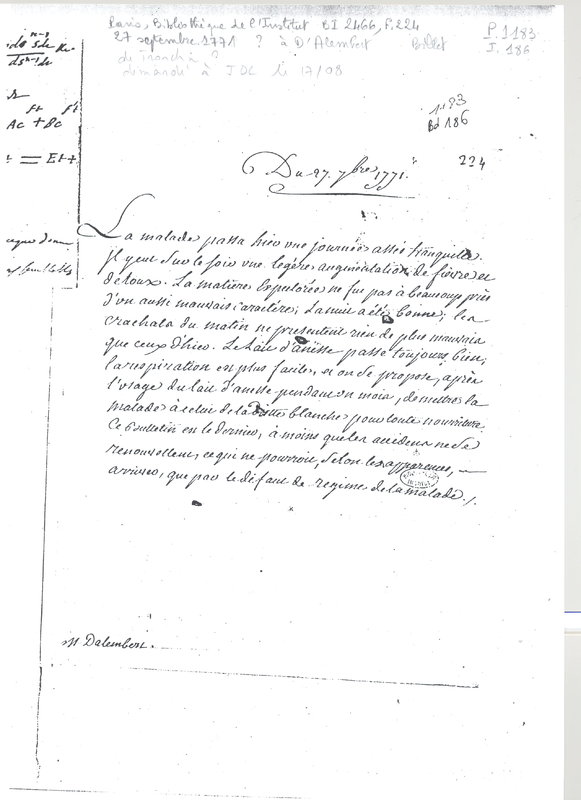 Paris, Bibliothèque de l'Institut BI 2466, f. 224
27 septembre 1771 ? à D'Alembert Billet
P. 1183
I. 186
de
demandé à JDC le 17/08
Ac + Bc
= Et +
Bd 186
224
Du 27. 7bre 1771.
La malade passa hier une journée assés tranquille.
Il y eut sur le soir une legére augmentation de fiévre et
de toux. La matiére expectorée ne fut pas à beaucoup près
d'un aussi mauvais caractére; La nuit a été bonne; les
crachats du matin ne presentent rien de plus mauvais
que ceux d'hier. Le Lait d'anesse passe toujours bien;
la respiration est plus facile, et on se propose, après
l'usage du lait d'anesse pendant un mois, de mettre la
malade à celui de la diette blanche pour toute nourriture.
Ce Boulletin est le dernier, à moins que les accidens ne se
renouvellent, ce qui ne pourroit, selon les apparences,
arriver, que par le défaut de regime de la malade ./.
M Dalembert.